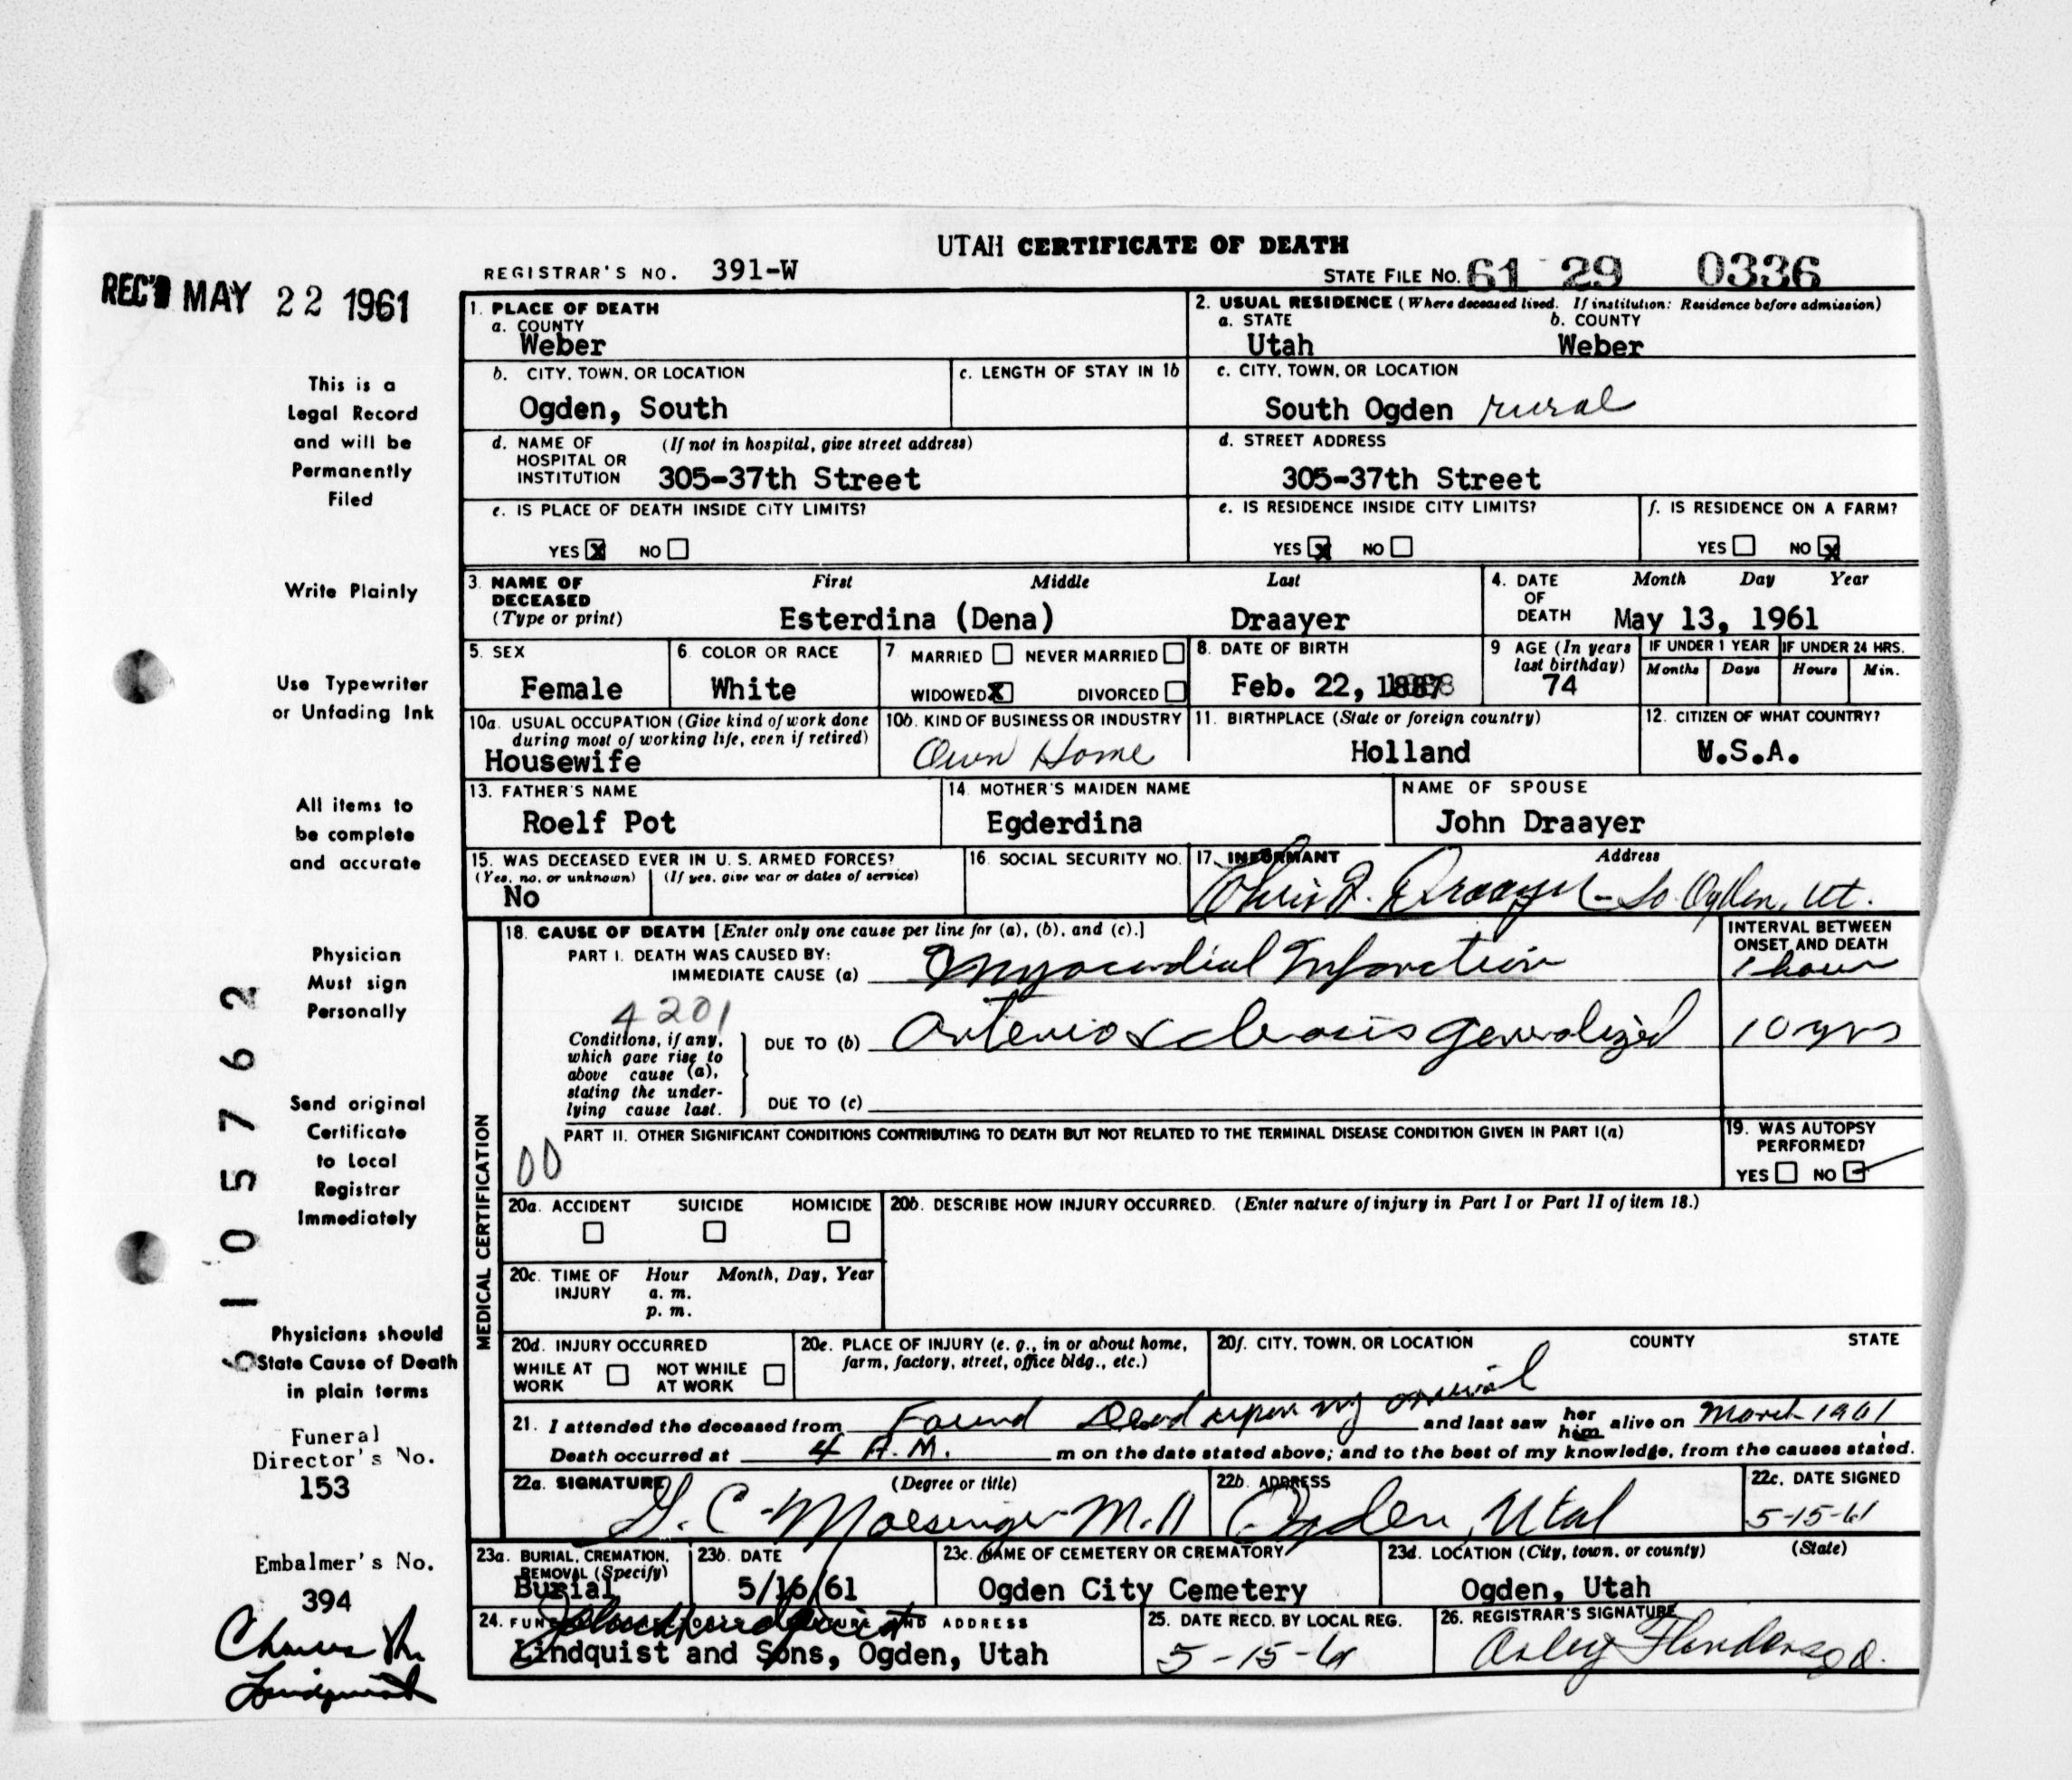 UTAH CERTIFICATE OF DEATH
REGISTRAR'S NO. 391-W
STATE FILE NO. 61 29 0336
REC'D MAY 22 1961
1. PLACE OF DEATH
a. COUNTY
Weber
2. USUAL RESIDENCE (Where deceased lived. If institution: Residence before admission)
a. STATE b. COUNTY
Utah Weber
b. CITY, TOWN, OR LOCATION
Ogden, South
c. LENGTH OF STAY IN 1b
c. CITY, TOWN, OR LOCATION
South Ogden rural
d. NAME OF HOSPITAL OR INSTITUTION (If not in hospital, give street address)
305-37th Street
d. STREET ADDRESS
305-37th Street
e. IS PLACE OF DEATH INSIDE CITY LIMITS?
YES X NO
e. IS RESIDENCE INSIDE CITY LIMITS?
YES X NO
f. IS RESIDENCE ON A FARM?
YES NO X
3. NAME OF DECEASED (Type or print)
First Middle Last
Esterdina (Dena) Draayer
4. DATE OF DEATH
Month Day Year
May 13, 1961
5. SEX
Female
6. COLOR OR RACE
White
7. MARRIED NEVER MARRIED
WIDOWED X DIVORCED
8. DATE OF BIRTH
Feb. 22,
9 AGE (In years last birthday)
74
IF UNDER 1 YEAR IF UNDER 24 HRS.
Months Days Hours Min.
10a. USUAL OCCUPATION (Give kind of work done during most of working life, even if retired)
Housewife
10b. KIND OF BUSINESS OR INDUSTRY
Own Home
11. BIRTHPLACE (State or foreign country)
Holland
12. CITIZEN OF WHAT COUNTRY?
U.S.A.
13. FATHER'S NAME
Roelf Pot
14. MOTHER'S MAIDEN NAME
Egderdina
NAME OF SPOUSE
John Draayer
15. WAS DECEASED EVER IN U. S. ARMED FORCES?
(Yes, no, or unknown) (If yes, give war or dates of service)
No
16. SOCIAL SECURITY NO.
17. INFORMANT Address
Draayer - So. Ogden, Ut.
MEDICAL CERTIFICATION
18. CAUSE OF DEATH [Enter only one cause per line for (a), (b), and (c).]
INTERVAL BETWEEN ONSET AND DEATH
PART I. DEATH WAS CAUSED BY:
IMMEDIATE CAUSE (a) Myocardial Infarction 1 hour
4201
Conditions, if any, which gave rise to above cause (a), stating the underlying cause last.
DUE TO (b) Arteriosclerosis generalized 10 yrs
DUE TO (c)
PART II. OTHER SIGNIFICANT CONDITIONS CONTRIBUTING TO DEATH BUT NOT RELATED TO THE TERMINAL DISEASE CONDITION GIVEN IN PART I(a)
00
19. WAS AUTOPSY PERFORMED?
YES NO
20a. ACCIDENT SUICIDE HOMICIDE
20b. DESCRIBE HOW INJURY OCCURRED. (Enter nature of injury in Part I or Part II of item 18.)
20c. TIME OF INJURY
Hour Month, Day, Year
a. m.
p. m.
20d. INJURY OCCURRED
WHILE AT WORK NOT WHILE AT WORK
20e. PLACE OF INJURY (e. g., in or about home, farm, factory, street, office bldg., etc.)
20f. CITY, TOWN, OR LOCATION COUNTY STATE
21. I attended the deceased from Found Dead upon my arrival and last saw her him alive on March 1961
Death occurred at 4 A.M. m on the date stated above; and to the best of my knowledge, from the causes stated.
22a. SIGNATURE (Degree or title)
G. C. Moesinger M.D.
22b. ADDRESS
Ogden, Utah
22c. DATE SIGNED
5-15-61
23a. BURIAL, CREMATION, REMOVAL (Specify)
Burial
23b. DATE
5/16/61
23c. NAME OF CEMETERY OR CREMATORY
Ogden City Cemetery
23d. LOCATION (City, town, or county) (State)
Ogden, Utah
24. FUNERAL DIRECTOR'S SIGNATURE AND ADDRESS
Lindquist and Sons, Ogden, Utah
25. DATE RECD. BY LOCAL REG.
5-15-61
26. REGISTRAR'S SIGNATURE
This is a
Legal Record
and will be
Permanently
Filed
Write Plainly
Use Typewriter
or Unfading Ink
All items to
be complete
and accurate
Physician
Must sign
Personally
Send original
Certificate
to Local
Registrar
Immediately
Physicians should
State Cause of Death
in plain terms
Funeral
Director's No.
153
Embalmer's No.
394
Lindquist
105762